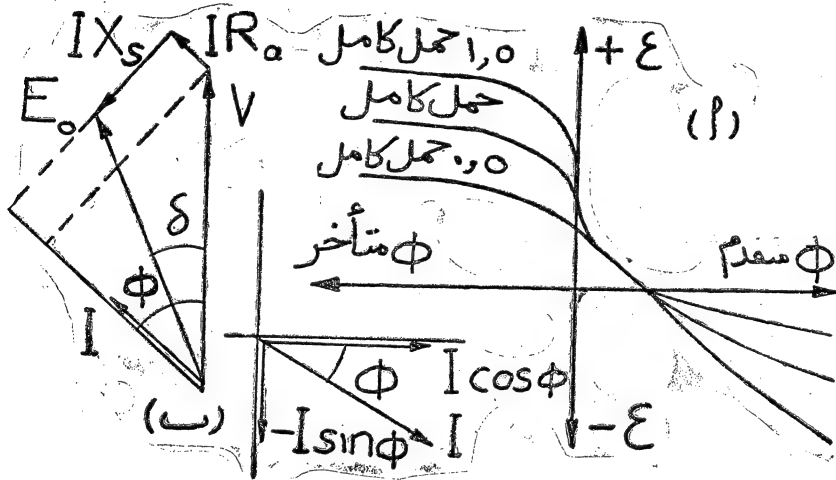 IXs
IRa
Eo
V
δ
Φ
I
(ب)
Φ
I cosΦ
-I sinΦ
I
1,5 حمل كامل
حمل كامل
0,5 حمل كامل
+ε
(أ)
Φ متأخر
Φ متقدم
-ε